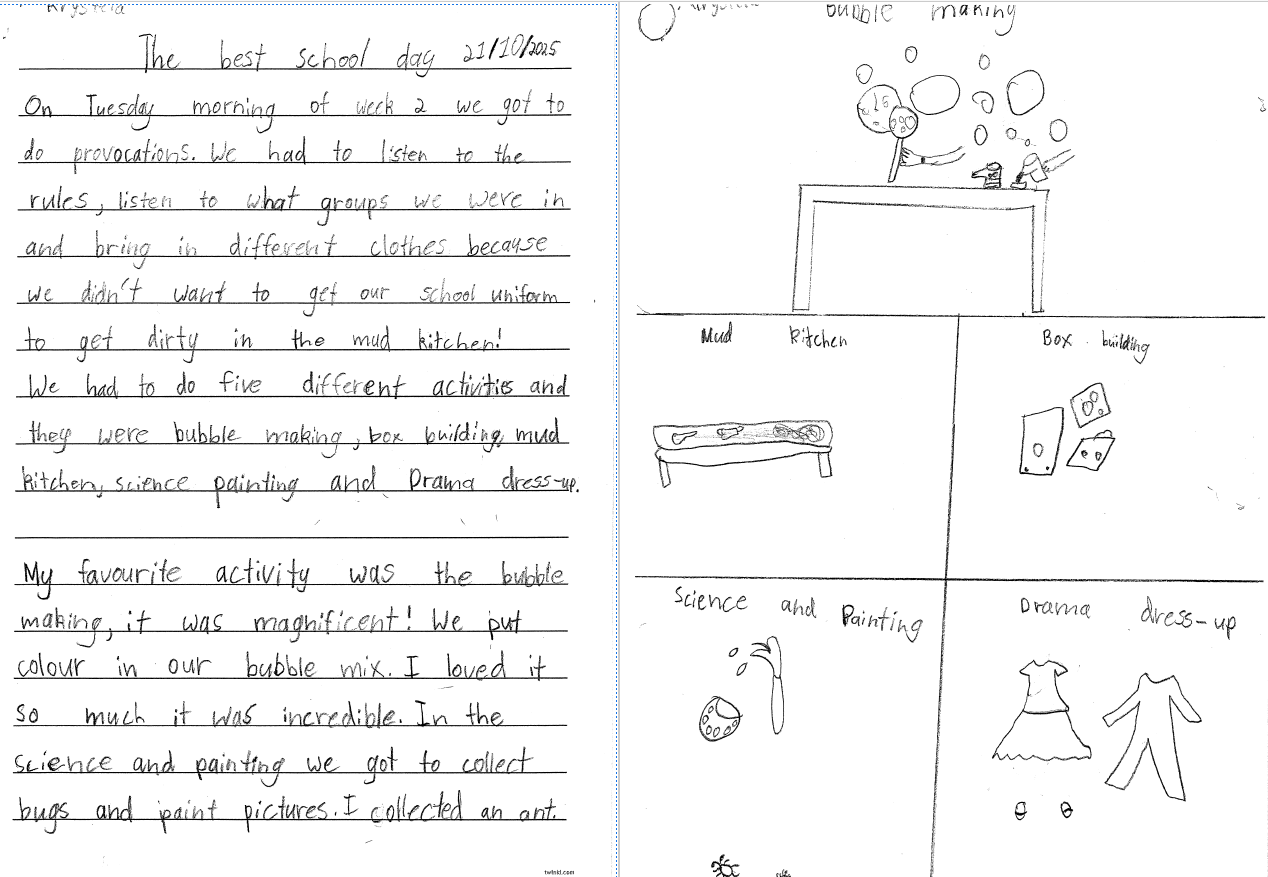 The best school day 21/10/2025
On Tuesday morning of week 2 we got to
do provocations. We had to listen to the
rules, listen to what groups we were in
and bring in different clothes because
we didn't want to get our school uniform
to get dirty in the mud kitchen!
We had to do five different activities and
they were bubble making, box building, mud
kitchen, science painting and Drama dress-up.
My favourite activity was the bubble
making, it was magnificent! We put
colour in our bubble mix. I loved it
so much it was incredible. In the
science and painting we got to collect
bugs and paint pictures. I collected an ant.
twinkl.com
bubble making
Mud kitchen
Box building
Science and Painting
Drama dress-up